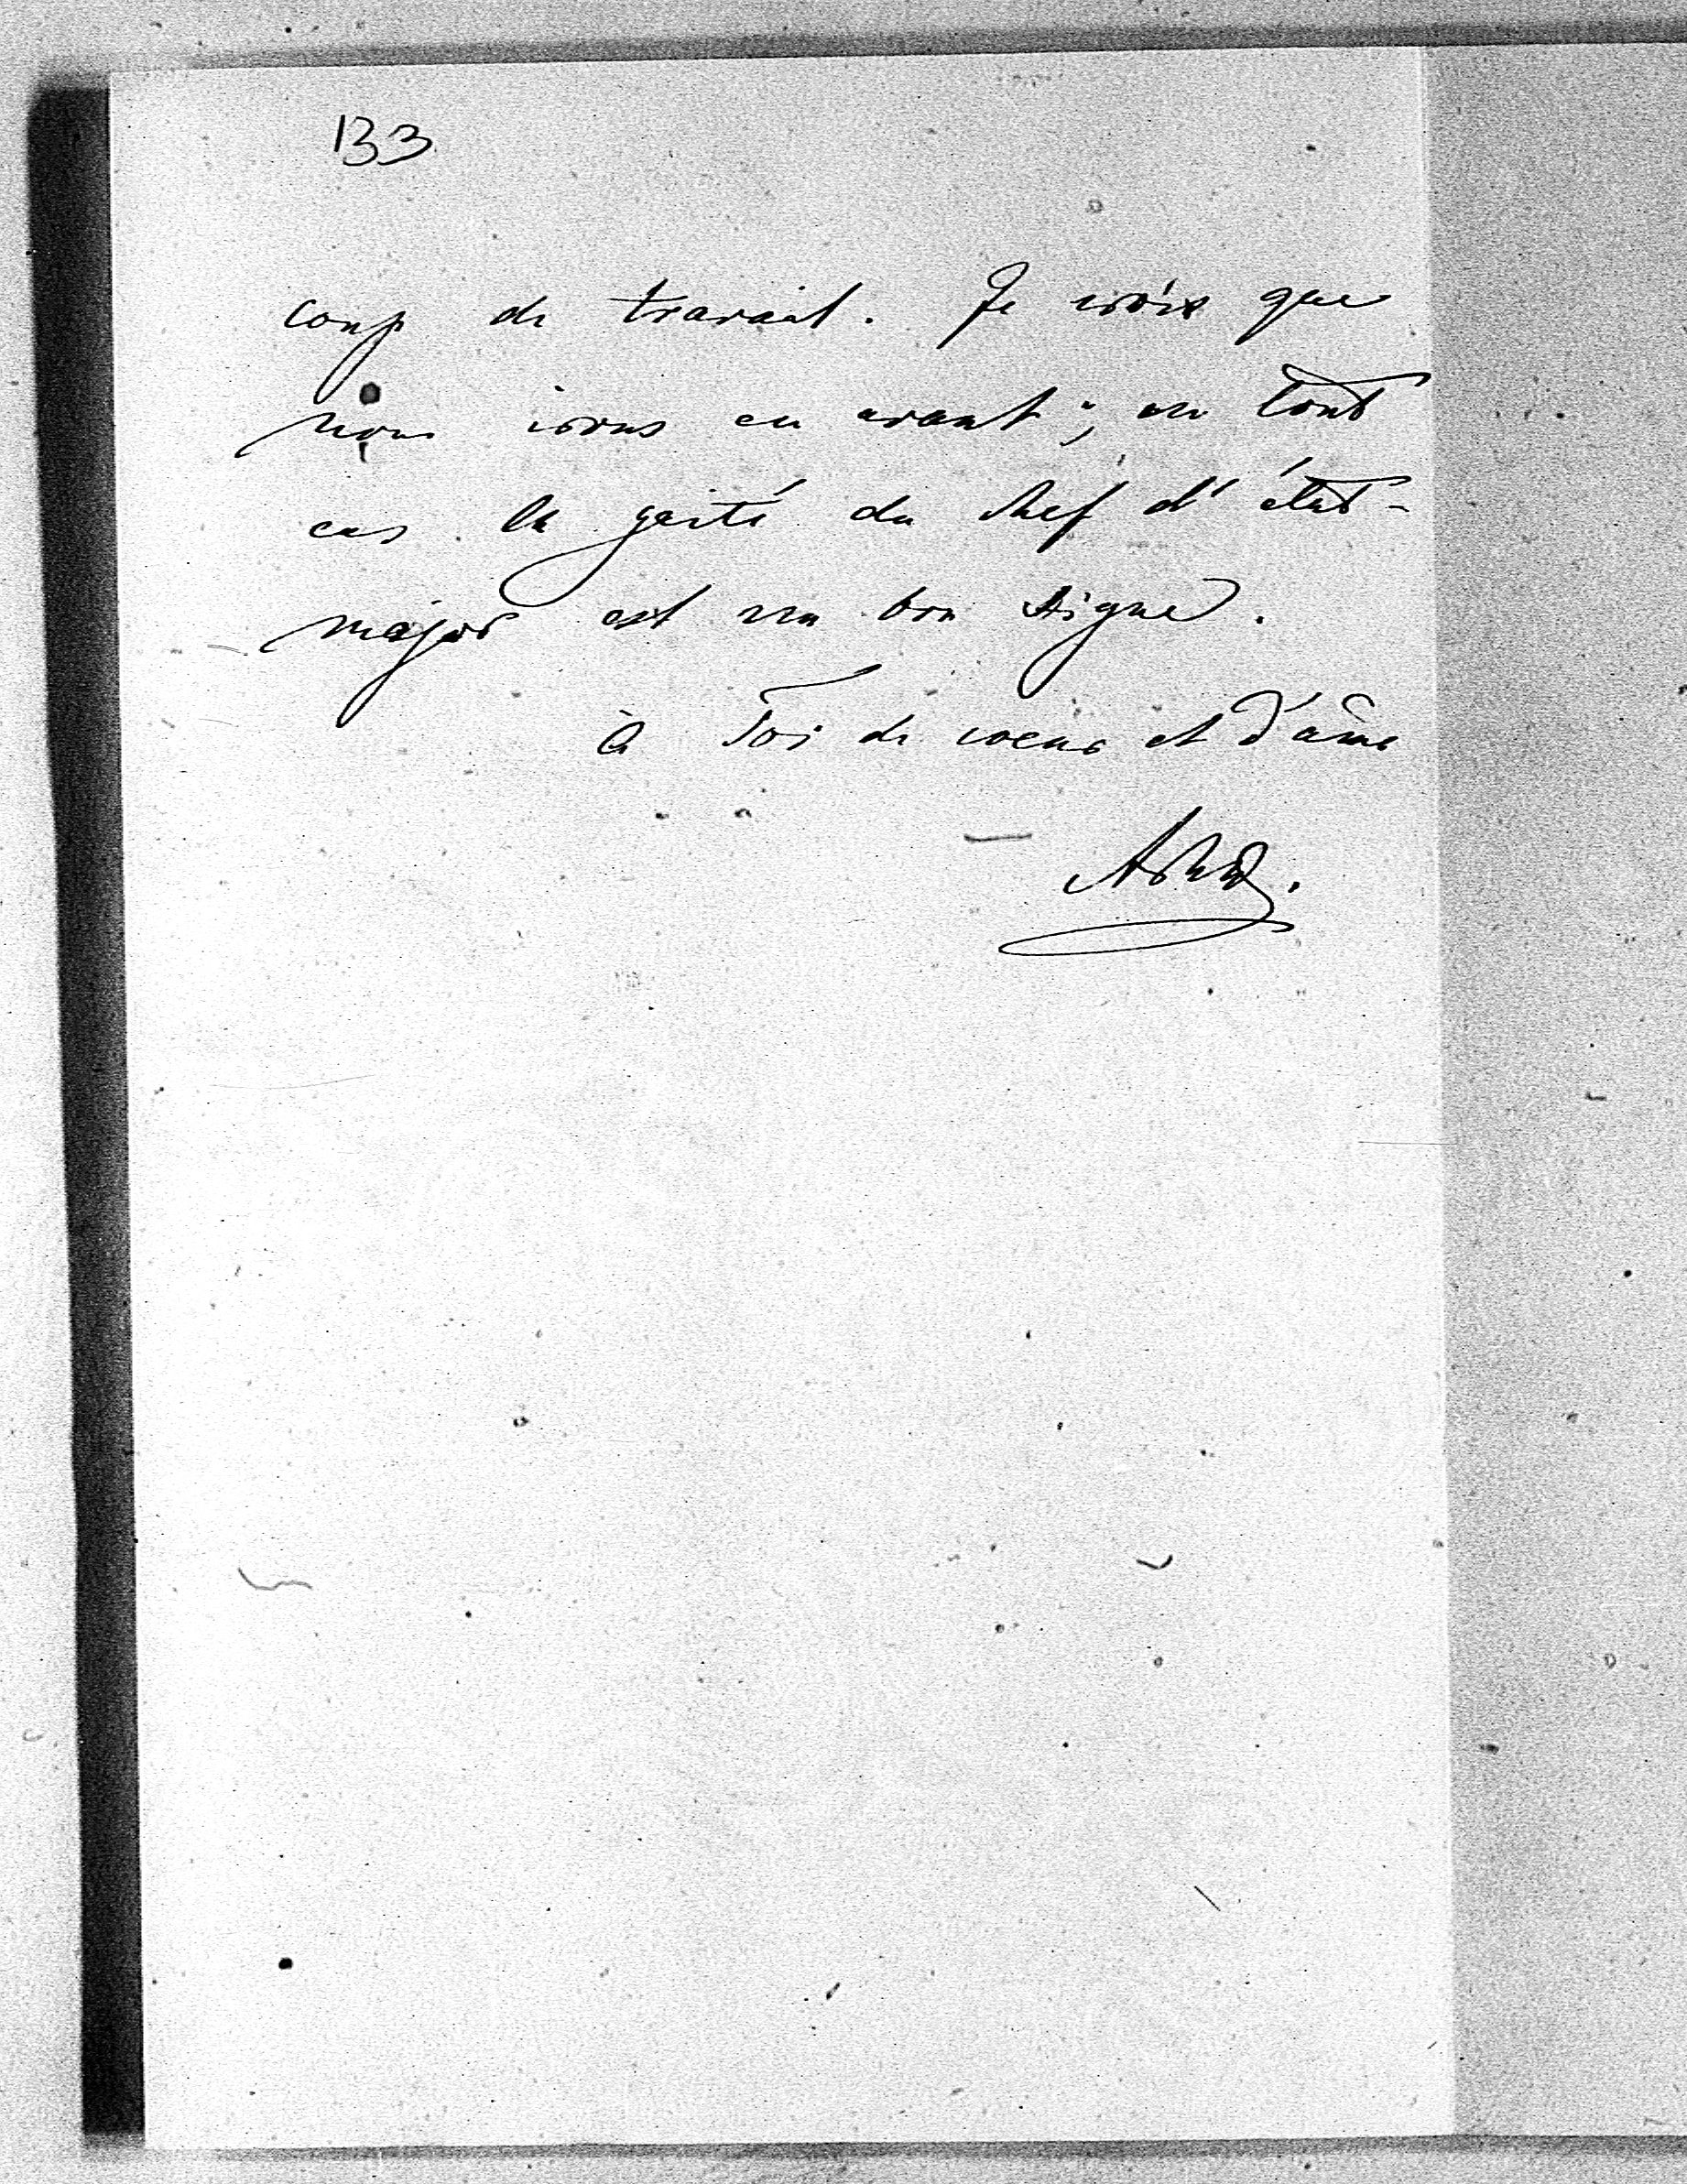 133
coup de travail. Je crois que
nous irons en avant ; en tout
cas la gaité du chef d'état-
major est un bon signe.
à Toi de coeur et d'âme